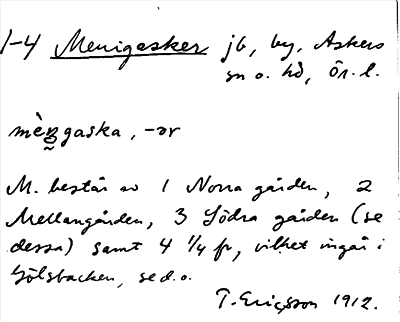 1-4 Menigasker jb, by, Askers
sn o. hd, Ör. l.
mèn̮gaska, -ər
M. består av 1 Norra gården, 2
Mellangården, 3 Södra gården (se
dessa) samt 4 1/4 fr, vilket ingår i
Sölsbacken, se d.o.
T. Ericsson 1912.